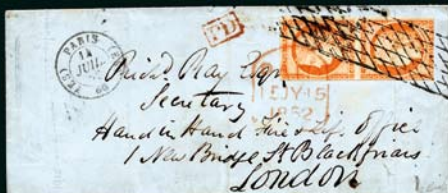 PARIS
14
JUIL
60
PD
JY 15
1852
Richd. Ray Esqr
Secretary
Hand in Hand Fire & Life Office
1 New Bridge St Blackfriars
London